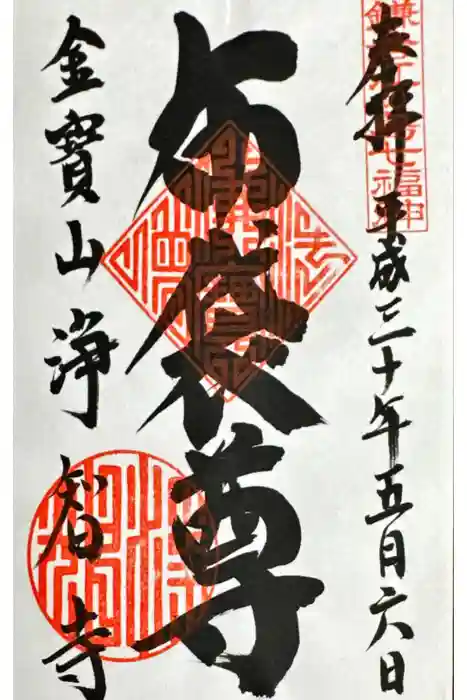 奉拝 平成三十年五月六日
布袋尊
金寶山浄智寺